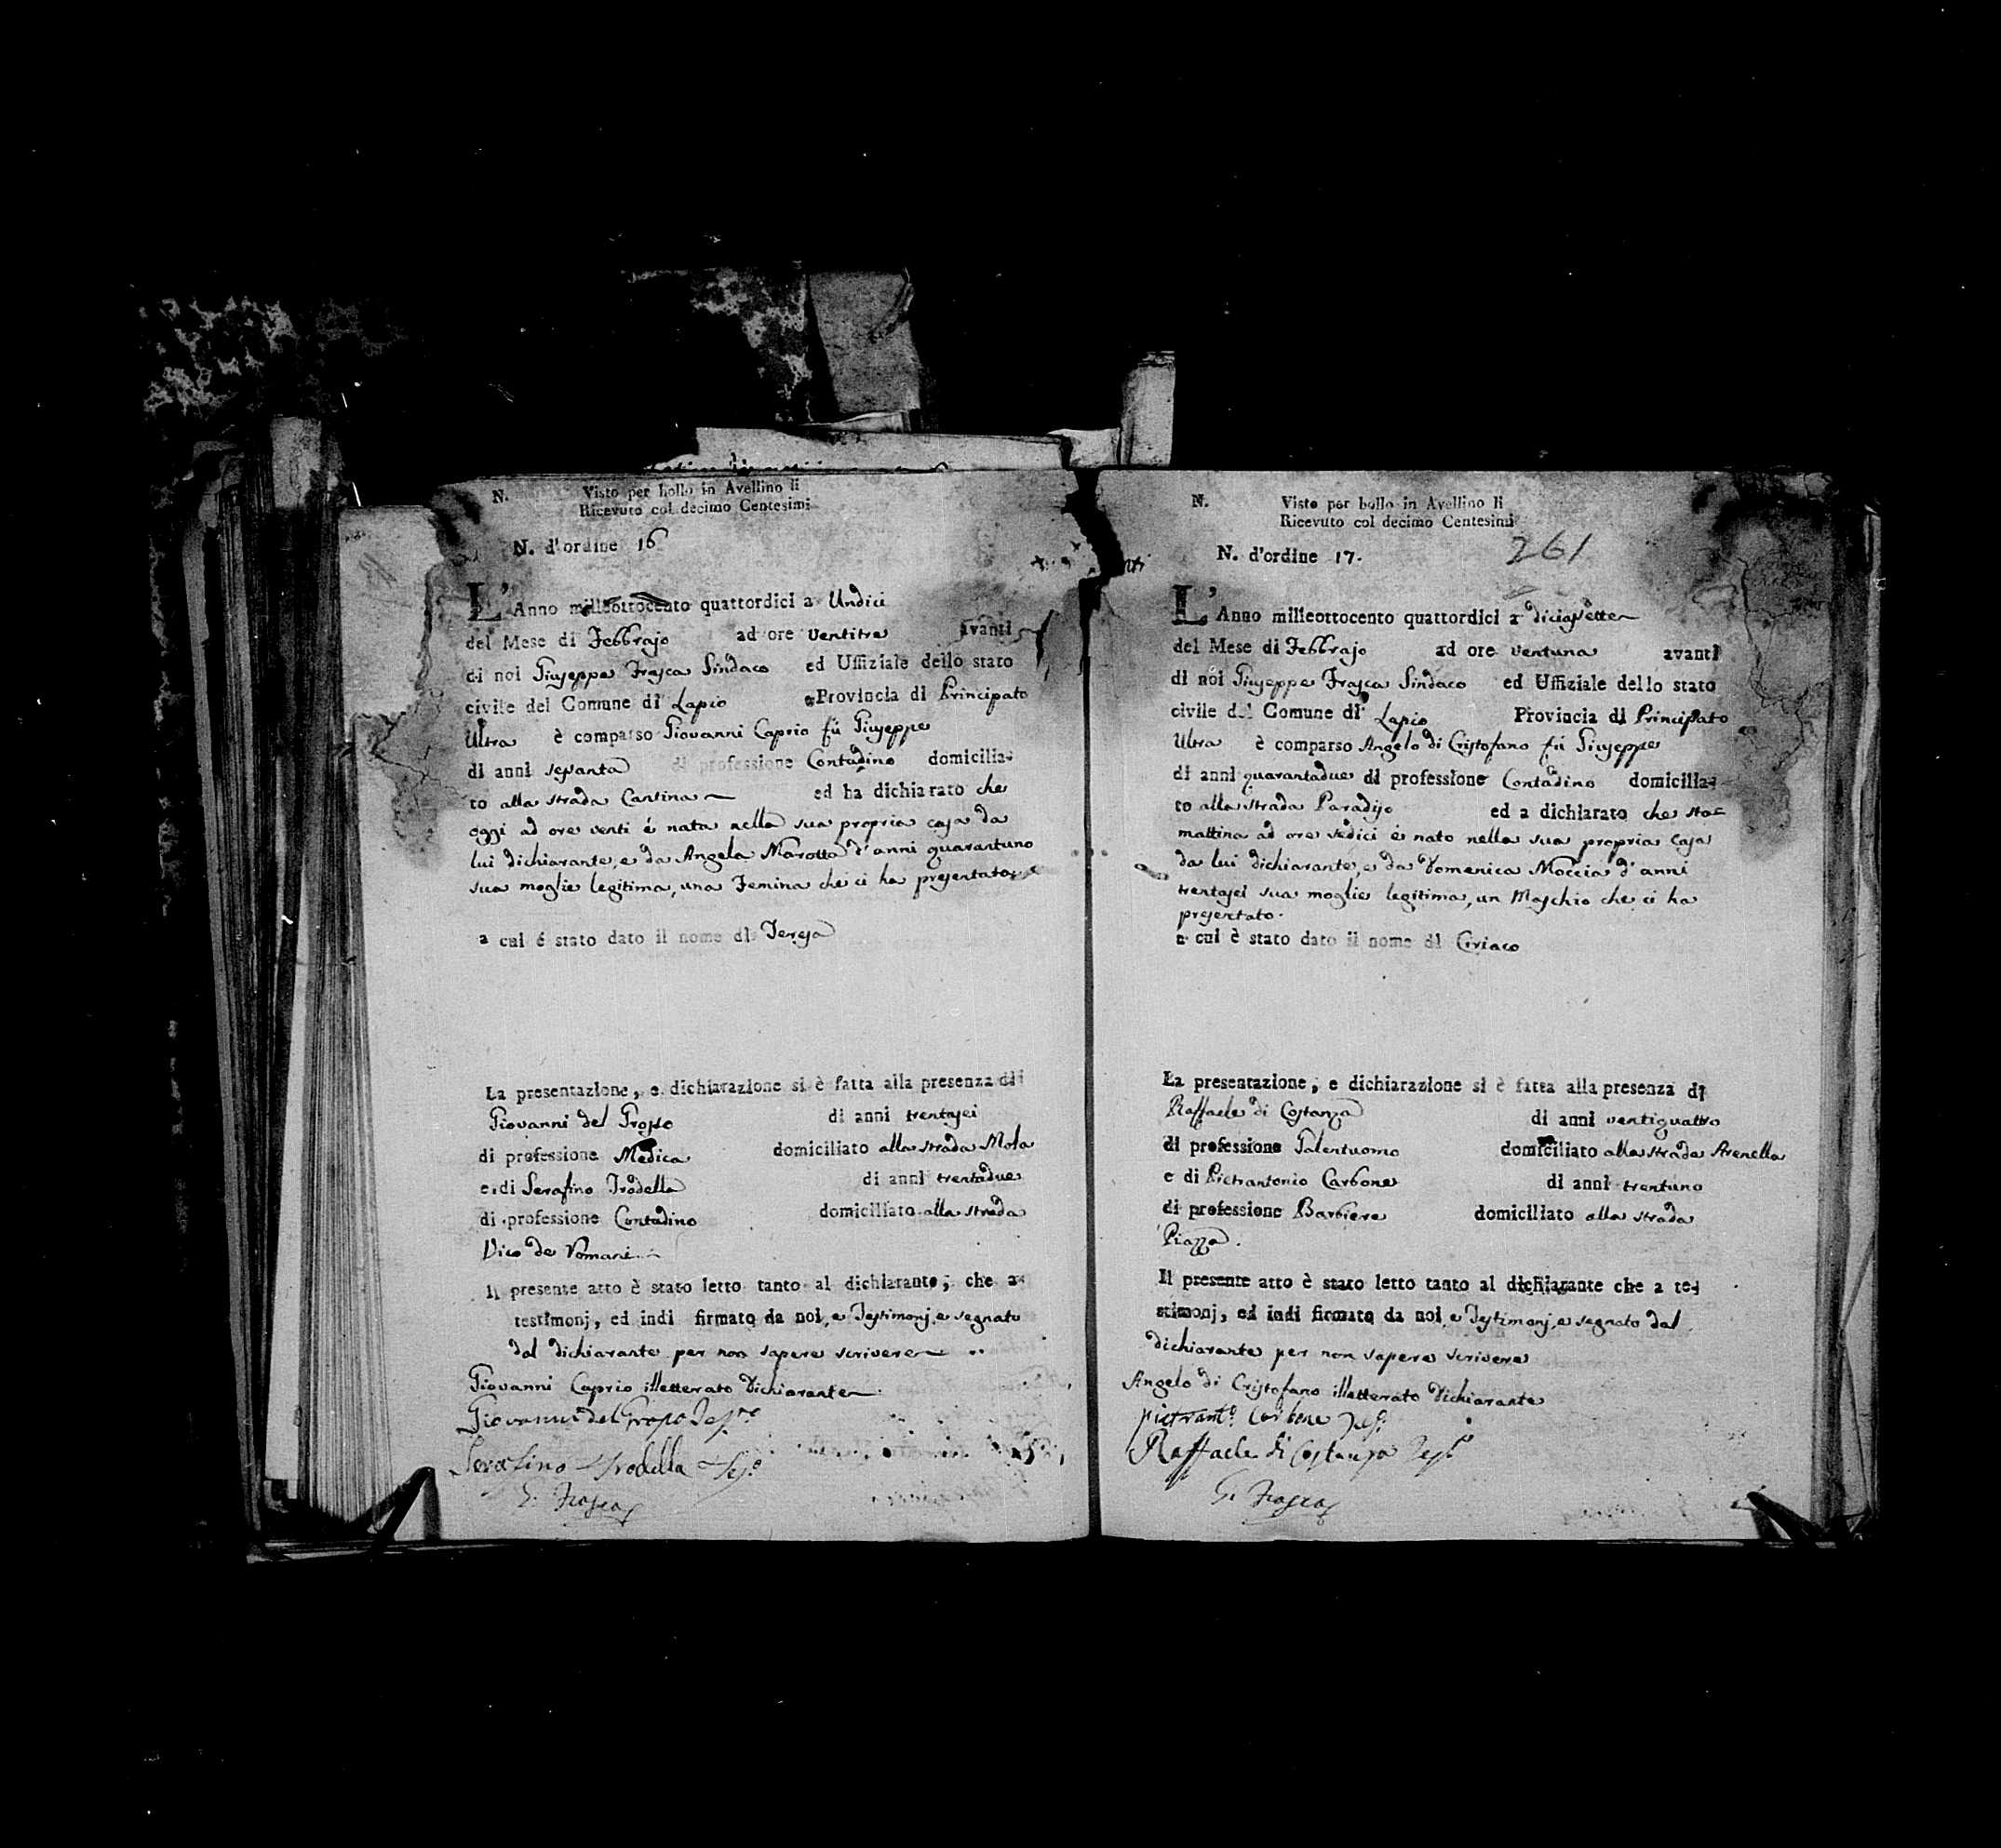 N. Visto per bollo in Avellino li
Ricevuto col decimo Centesimi
N. d'ordine 16
L'Anno milleottocento quattordici a Undici
del Mese di Febbrajo ad ore ventitre avanti
di noi Giuseppe Frasca Sindaco ed Uffiziale dello stato
civile del Comune di Lapio Provincia di Principato
Ultra è comparso Giovanni Caprio fù Giuseppe
di anni sessanta di professione Contadino domicilia-
to alla strada Cantina ed ha dichiarato che
oggi ad ore venti é nata nella sua propria casa da
lui dichiarante, e da Angela Marotta d'anni quarantuno
sua moglie legitima, una Femina che ci ha presentato
a cui é stato dato il nome di Teresa
La presentazione, e dichiarazione si è fatta alla presenza di
Giovanni del Grosso di anni trentasei
di professione Medica domiciliato alla strada Mola
e di Serafino Trodella di anni trentadue
di professione Contadino domiciliato alla strada
Vico de
Il presente atto è stato letto tanto al dichiarante, che a
testimonj, ed indi firmato da noi, e Testimonj, e segnato
dal dichiarante per non sapere scrivere
Giovanni Caprio illetterato Dichiarante
Giovanni del Grosso
Serafino Trodella
G. Frasca
N. Visto per bollo in Avellino li
Ricevuto col decimo Centesimi
N. d'ordine 17. 261
L'Anno milleottocento quattordici a diciassette
del Mese di Febbrajo ad ore ventuna avanti
di noi Giuseppe Frasca Sindaco ed Uffiziale dello stato
civile del Comune di Lapio Provincia di Principato
Ultra è comparso Angelo di Cristofano fù Giuseppe
di anni quarantadue di professione Contadino domicilia-
to alla strada Paradiso ed a dichiarato che sta=
mattina ad ore sedici è nato nella sua propria casa
da lui dichiarante, e da Domenica Moccia d'anni
trentasei sua moglie legitima, un Maschio che ci ha
presentato.
a cui è stato dato il nome di Ciriaco
La presentazione, e dichiarazione si è fatta alla presenza di
Raffaele di Costanza di anni ventiquattro
di professione Galentuomo domiciliato alla strada Arenella
e di Pietrantonio Carbone di anni trentuno
di professione Barbiere domiciliato alla strada
Piazza.
Il presente atto è stato letto tanto al dichiarante che a te-
stimonj, ed indi firmato da noi, e Testimonj, e segnato dal
dichiarante per non sapere scrivere
Angelo di Cristofano illetterato Dichiarante
pietrant.o Carbone
Raffaele di Costanza
G. Frasca